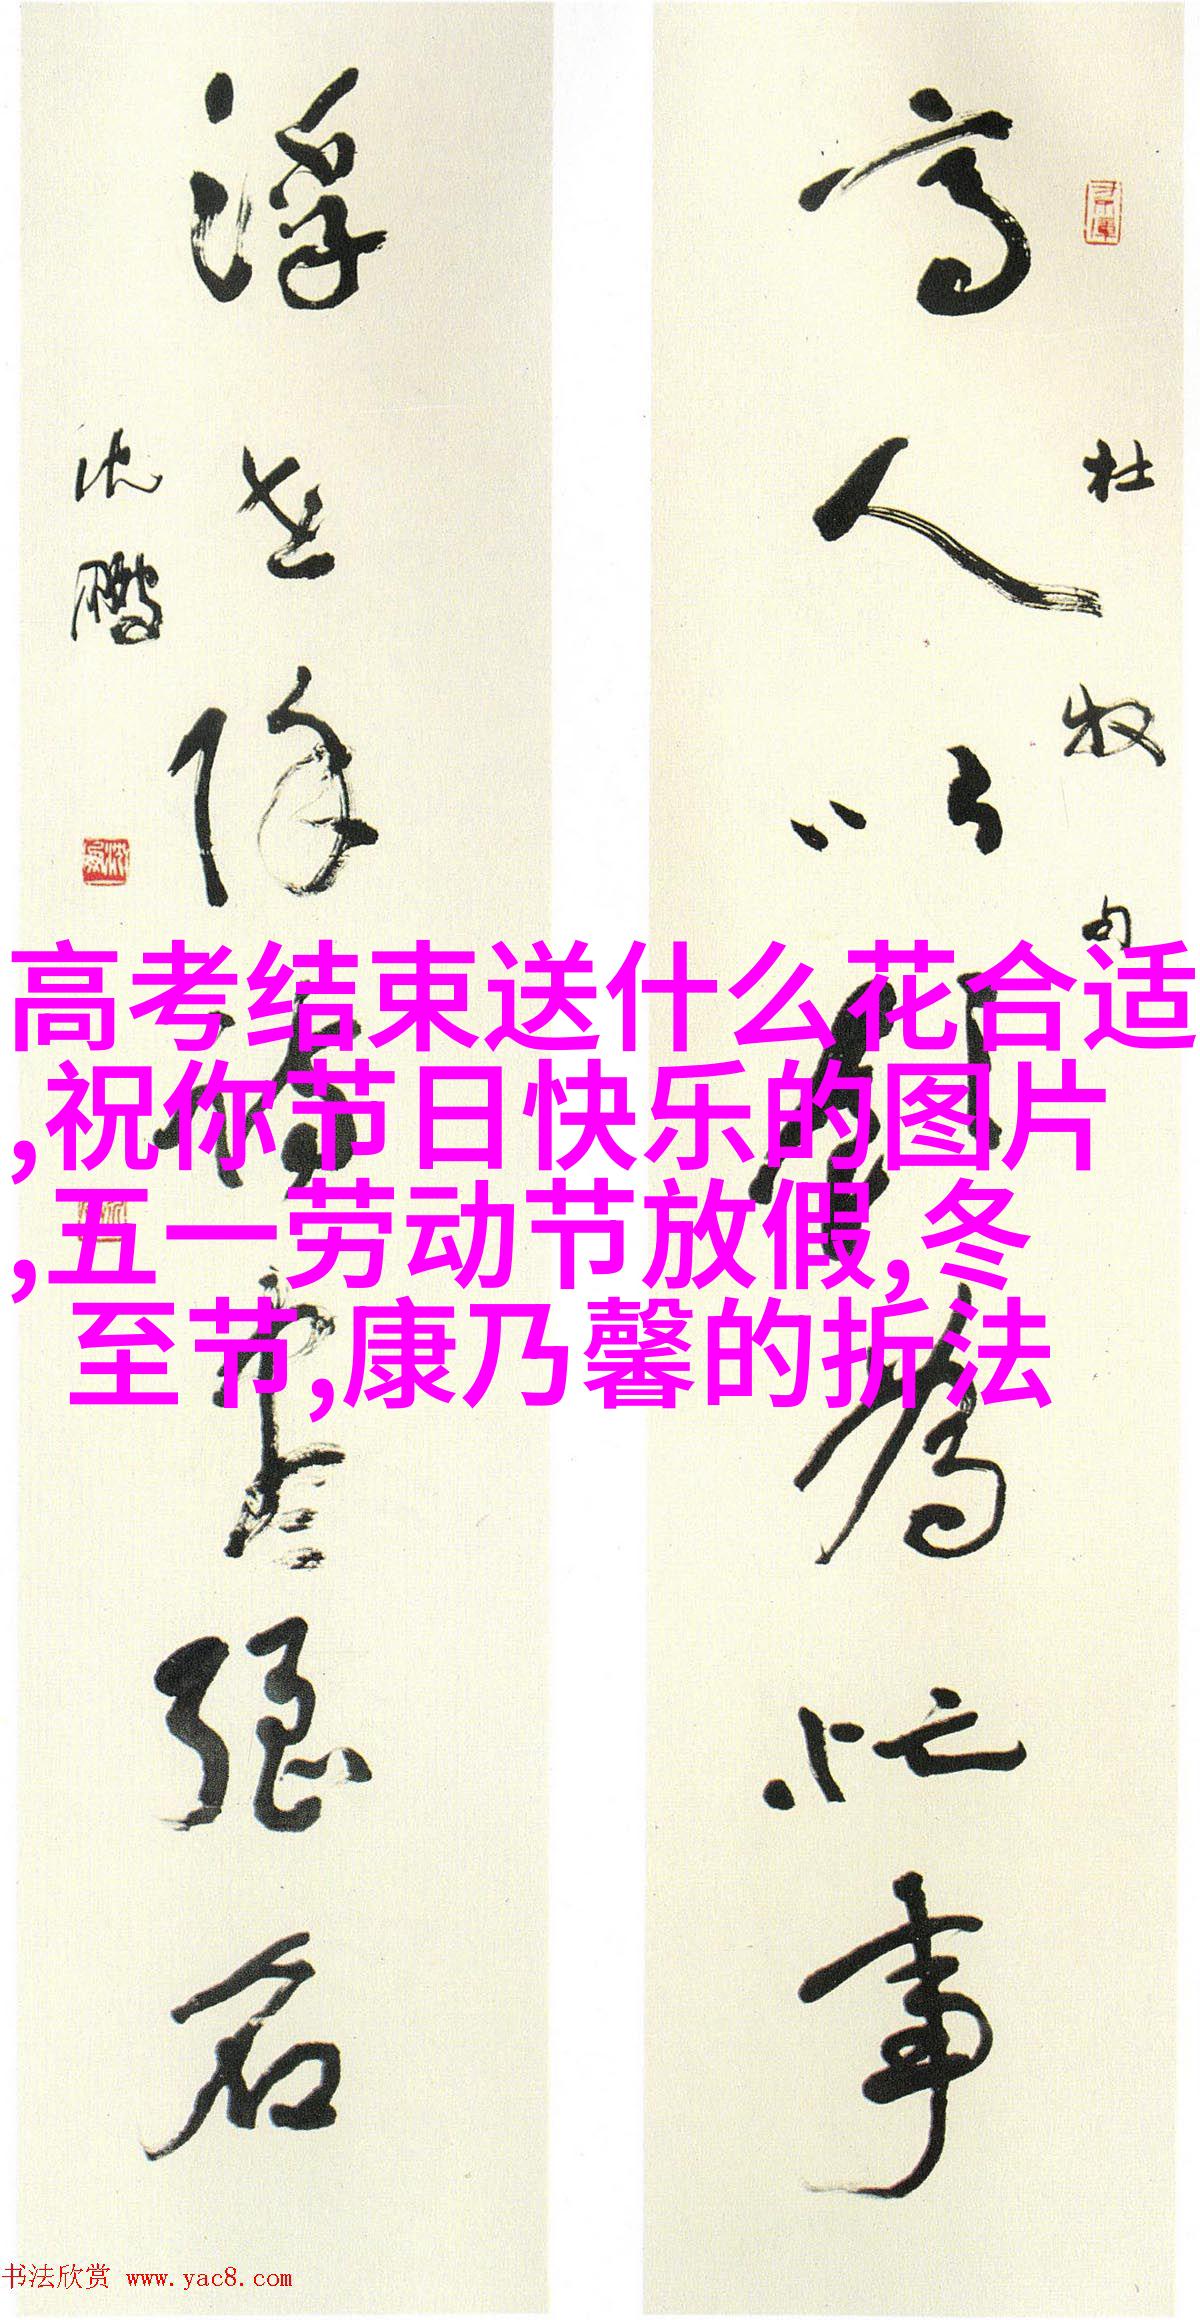 高人以飲為忙事
杜牧句
浮世除詩盡強名
沈鵬
高考结束送什么花合适
,祝你节日快乐的图片
,五一劳动节放假,冬
至节,康乃馨的折法
书法欣赏 www.yac8.com